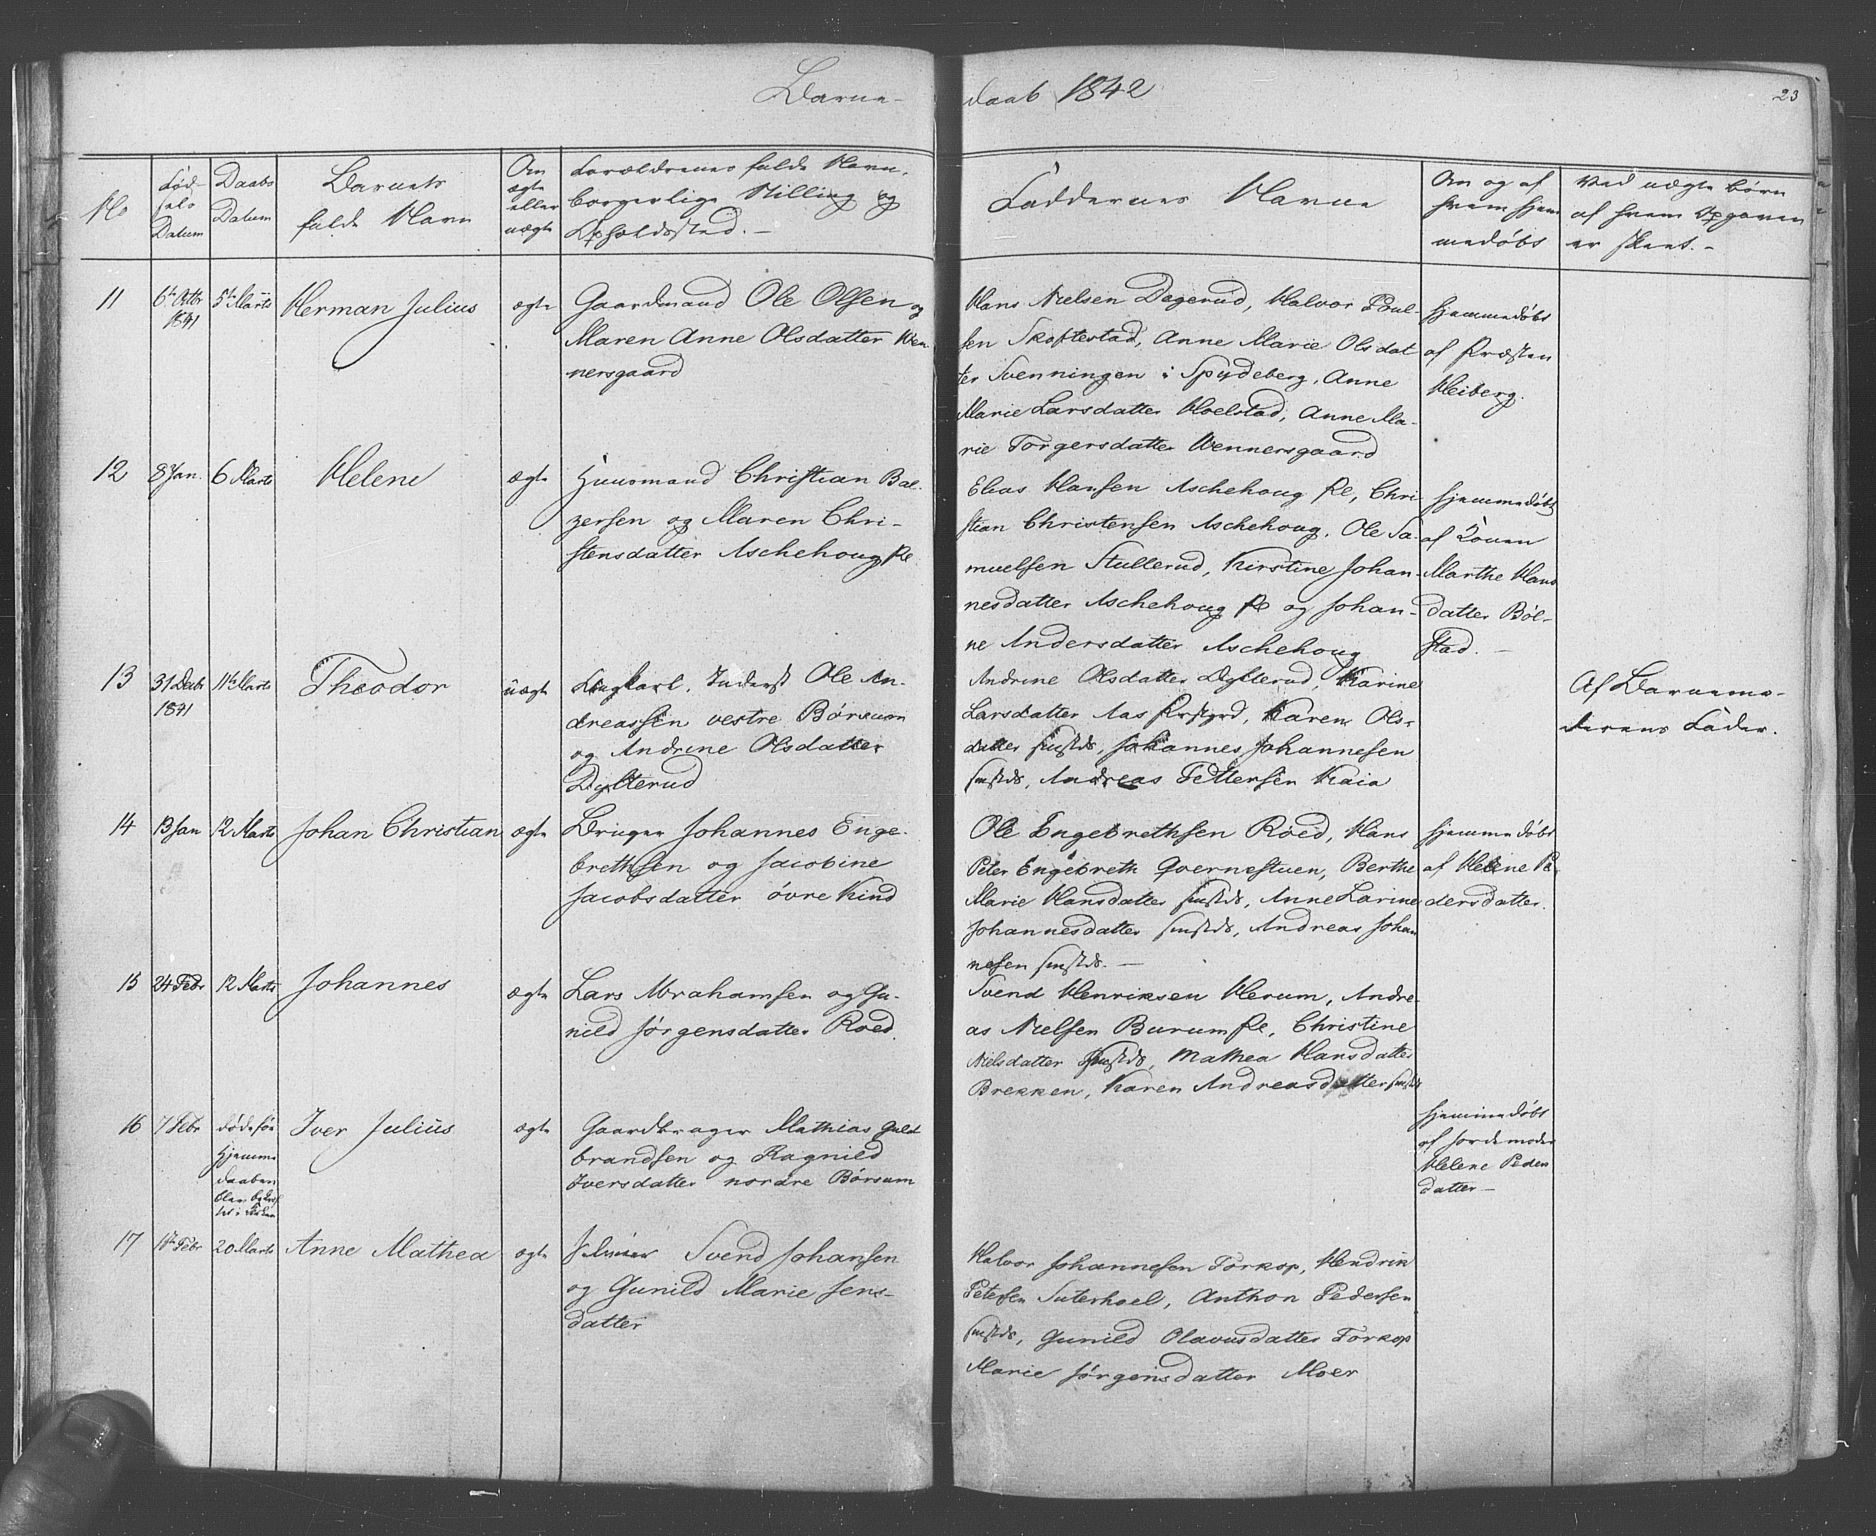 Barne-
daab 1842
23
No
Fød-
sels
Datum
Daabs
Datum
Barnets
fulde Navn
Om
ægte
eller
uægte
Forældrenes fulde Navn,
borgerlige Stilling og
Opholdssted. -
Faddernes Navne
Om og af
hvem hjem
medøbt
Ved uægte Børn
af hvem Opgaven
er skeet. -
11
6te Octbr
1841
5te Marts
Herman Julius
ægte
Gaardmand Ole Olsen og
Maren Anne Olsdatter Wen-
nersgaard
Hans Nielsen Dægerud, Halvor Poul-
sen Skoftestad, Anne Marie Olsdat
ter Svenningen i Spydeberg, Anne
Marie Larsdatter Hoelstad, Anne Ma-
rie Torgersdatter Wennersgaard
hjemmedøbt
af Præsten
Heiberg.
12
8 Jan.
6 Marts
Helene
ægte
Huusmand Christian Bal-
zersen og Maren Chri-
stensdatter Aschehoug
Elias Hansen Aschehoug, Chri
stian Christensen Aschehoug, Ole Sa-
muelsen Stullerud, Kirstine Johan-
nesdatter Aschehoug og Johan-
ne Andersdatter Aschehoug
hjemmedøbt
af Konen
Marthe Hans
datter Bøl-
stad. -
13
31 Decbr
1841
11te Marts
Theodor
uægte
Ungkarl, Inderst Ole An-
dreassen vestre Børsum
og Andrine Olsdatter
Dylterud
Andrine Olsdatter Dylterud, Karine
Larsdatter Aas, Karen Ols-
datter sammestds, Johannes Johannesen
sammestds, Andreas Pettersen Kaia
Af Barnemo-
derens Fader.
14
13 Jan
12 Marts
Johan Christian
ægte
Bruger Johannes Enge-
brethsen og Jacobine
Jacobsdatter øvre Kind
Ole Engebrethsen Røed, Hans
Peter Engebreth Qvernestuen, Berthe
Marie Hansdatter sammestds, Anne Larine
Johannesdatter sammestds, Andreas Johan
nesen sammestds. -
hjemmedøbt
af Helene Pe-
dersdatter.
15
24 Febr
12 Marts
Johannes
ægte
Lars Abrahamsen og Gu-
nild Jørgensdatter Røed.
Svend Henriksen Herum, Andre-
as Nielsen Burum, Christine
Nielsdatter sammestds, Mathea Hansdatter
Brekken, Karen Andreasdatter sammestds
16
7 Febr
død før
hjemme
daaben
blev
Iver Julius
ægte
Gaardbruger Mathias Guld
brandsen og Ragnild
Iversdatter nordre Børsum
hjemmedøbt
af Jordemoder
Helene Peders
datter -
17
11te Febr
20 Marts
Anne Mathea
ægte
Svend Johansen
og Gunild Marie Jens-
datter
Halvor Johannesen Torkop, Hendrik
Petersen Suterhoel, Anthon Pedersen
sammestds, Gunild Olavusdatter Torkop
Marie Jørgensdatter Moer